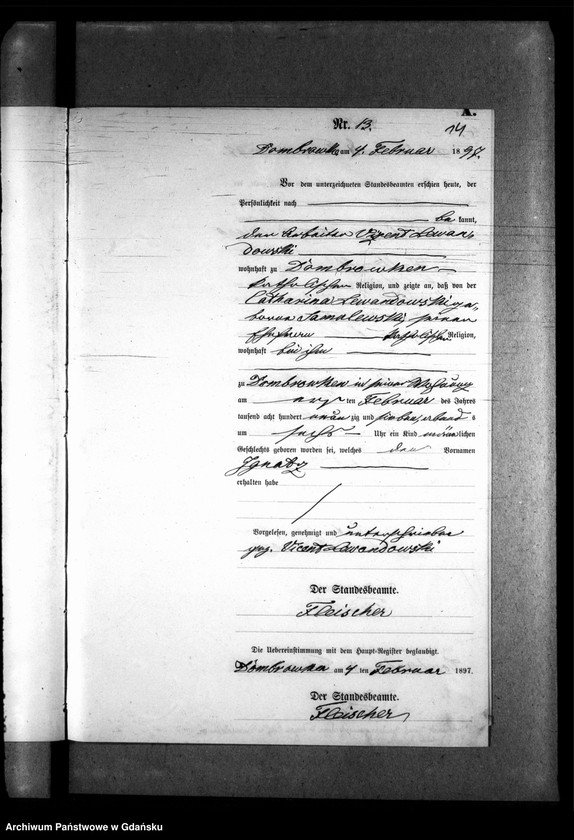 A.
Nr. 13.
14
Dombrowken am 4. Februar 1897.
Vor dem unterzeichneten Standesbeamten erschien heute, der
Persönlichkeit nach
be kannt,
den Arbeiter Vizent Lewan-
dowski
wohnhaft zu Dombrowken
katholischer Religion, und zeigte an, daß von der
Catharina Lewandowski ge-
borene Samalewski, seiner
Ehefrau katholischer Religion,
wohnhaft bei ihm
zu Dombrowken in seiner Wohnung
am ten Februar des Jahres
tausend acht hundert neun zig und sieben,
um sechs Uhr ein Kind männlichen
Geschlechts geboren worden sei, welches den Vornamen
Ignatz
erhalten habe
Vorgelesen, genehmigt und unterschrieben
gez. Vicent Lewandowski
Der Standesbeamte.
Fleischer
Die Uebereinstimmung mit dem Haupt-Register beglaubigt.
Dombrowken am 4 ten Februar 1897.
Der Standesbeamte.
Fleischer
Archiwum Państwowe w Gdańsku